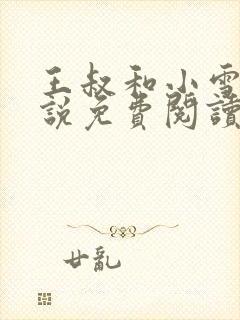 王叔和小雪
說免費閱讀
廿亂